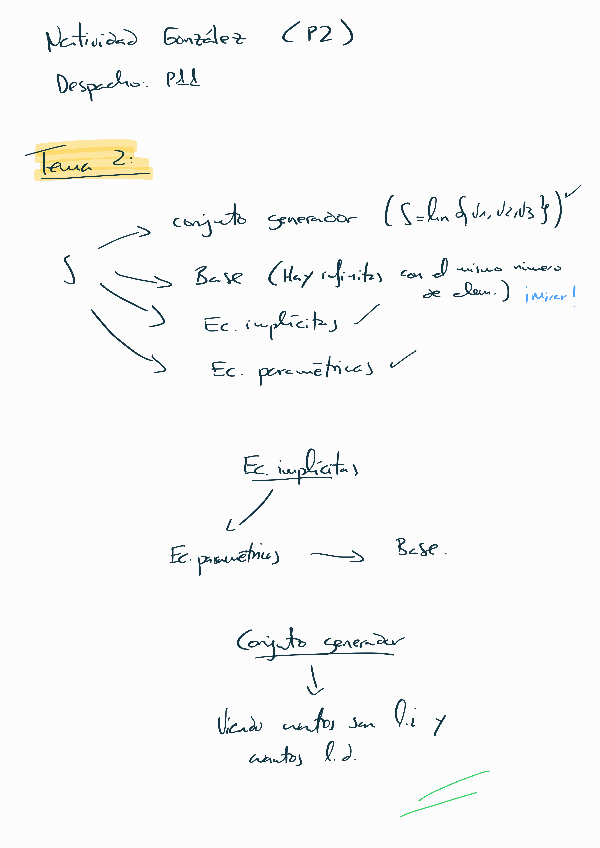 Natividad González (P2)
Despacho: P11
Tema 2:
S
conjunto generador (S=lin{v1, v2, v3})
Base (Hay infinitas con el mismo número
de elem.) ¡Mirar!
Ec. implícitas
Ec. paramétricas
Ec. implícitas
Ec. paramétricas
Base.
Conjunto generador
Viendo cuantos son l.i y
cuantos l.d.